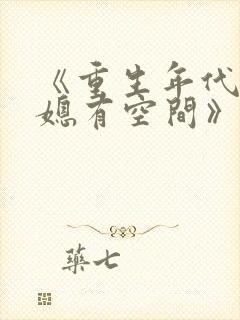 《重生年代
媳有空間》
藥七